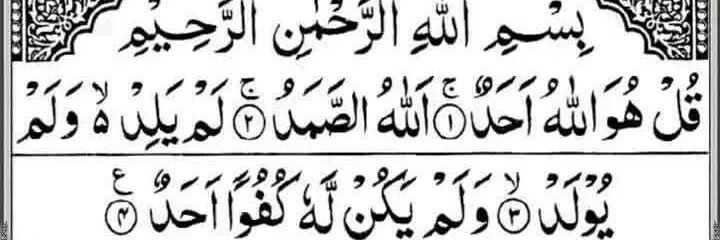 بِسْمِ اللّٰهِ الرَّحْمٰنِ الرَّحِيْمِ
قُلْ هُوَ اللّٰهُ اَحَدٌ ۚ﴿۱﴾ اَللّٰهُ الصَّمَدُ ۚ﴿۲﴾ لَمْ يَلِدْ ۙ۵ وَلَمْ
يُوْلَدْ ۙ﴿۳﴾ وَلَمْ يَكُنْ لَّهٗ كُفُوًا اَحَدٌ ﴿۴﴾ ع